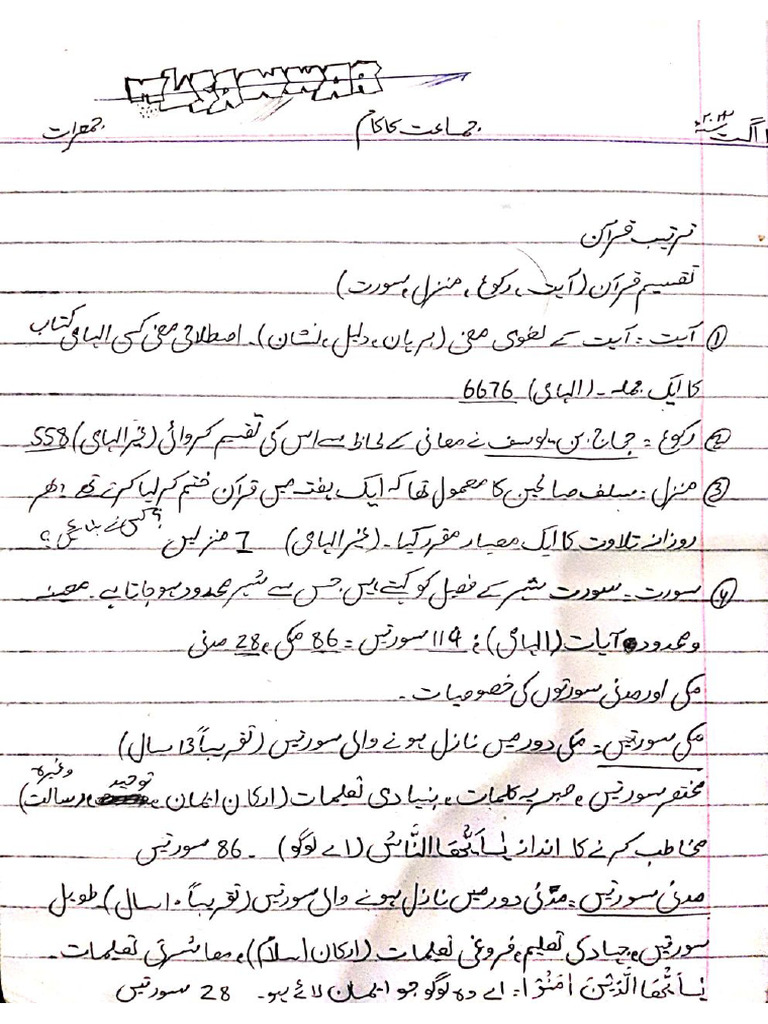 MUSAWWAR
اگست ۲۰۲۳ء جماعت کا کام جمعرات
ترتیب قرآن
تقسیم قرآن (آیت، رکوع، منزل، سورت)
① آیت: آیت کے لغوی معنی (برہان، دلیل، نشان)۔ اصطلاحی معنی کسی الہامی کتاب
کا ایک جملہ۔ (الہامی) 6676
② رکوع: حجاج بن یوسف نے معانی کے لحاظ سے اس کی تقسیم کروائی (غیر الہامی) 558
③ منزل: سلف صالحین کا معمول تھا کہ ایک ہفتہ میں قرآن ختم کر لیا کرتے تھے، پھر
روزانہ تلاوت کا ایک معیار مقرر کیا۔ (غیر الہامی) 7 منزلیں کس نے بنائی تھی؟
④ سورت: سورت شہر کے فصیل کو کہتے ہیں جس سے شہر محدود ہو جاتا ہے۔ معینہ
و محدود آیات (الہامی)؛ 114 سورتیں = 86 مکی، 28 مدنی
مکی اور مدنی سورتوں کی خصوصیات۔
مکی سورتیں: مکی دور میں نازل ہونے والی سورتیں (تقریباً 13 سال)
مختصر سورتیں، صبر پہ کلمات، بنیادی تعلیمات (ارکان ایمان، توحید، رسالت) وغیرہ
مخاطب کرنے کا انداز یٰٓاَیُّھَا النَّاسُ (اے لوگو)۔ 86 سورتیں
مدنی سورتیں: مدنی دور میں نازل ہونے والی سورتیں (تقریباً ۱۰ سال)۔ طویل
سورتیں، جہاد کی تعلیم، فروعی تعلیمات (ارکان اسلام)، معاشرتی تعلیمات۔
یٰٓاَیُّھَا الَّذِیْنَ اٰمَنُوْا: اے وہ لوگو جو ایمان لائے ہو۔ 28 سورتیں